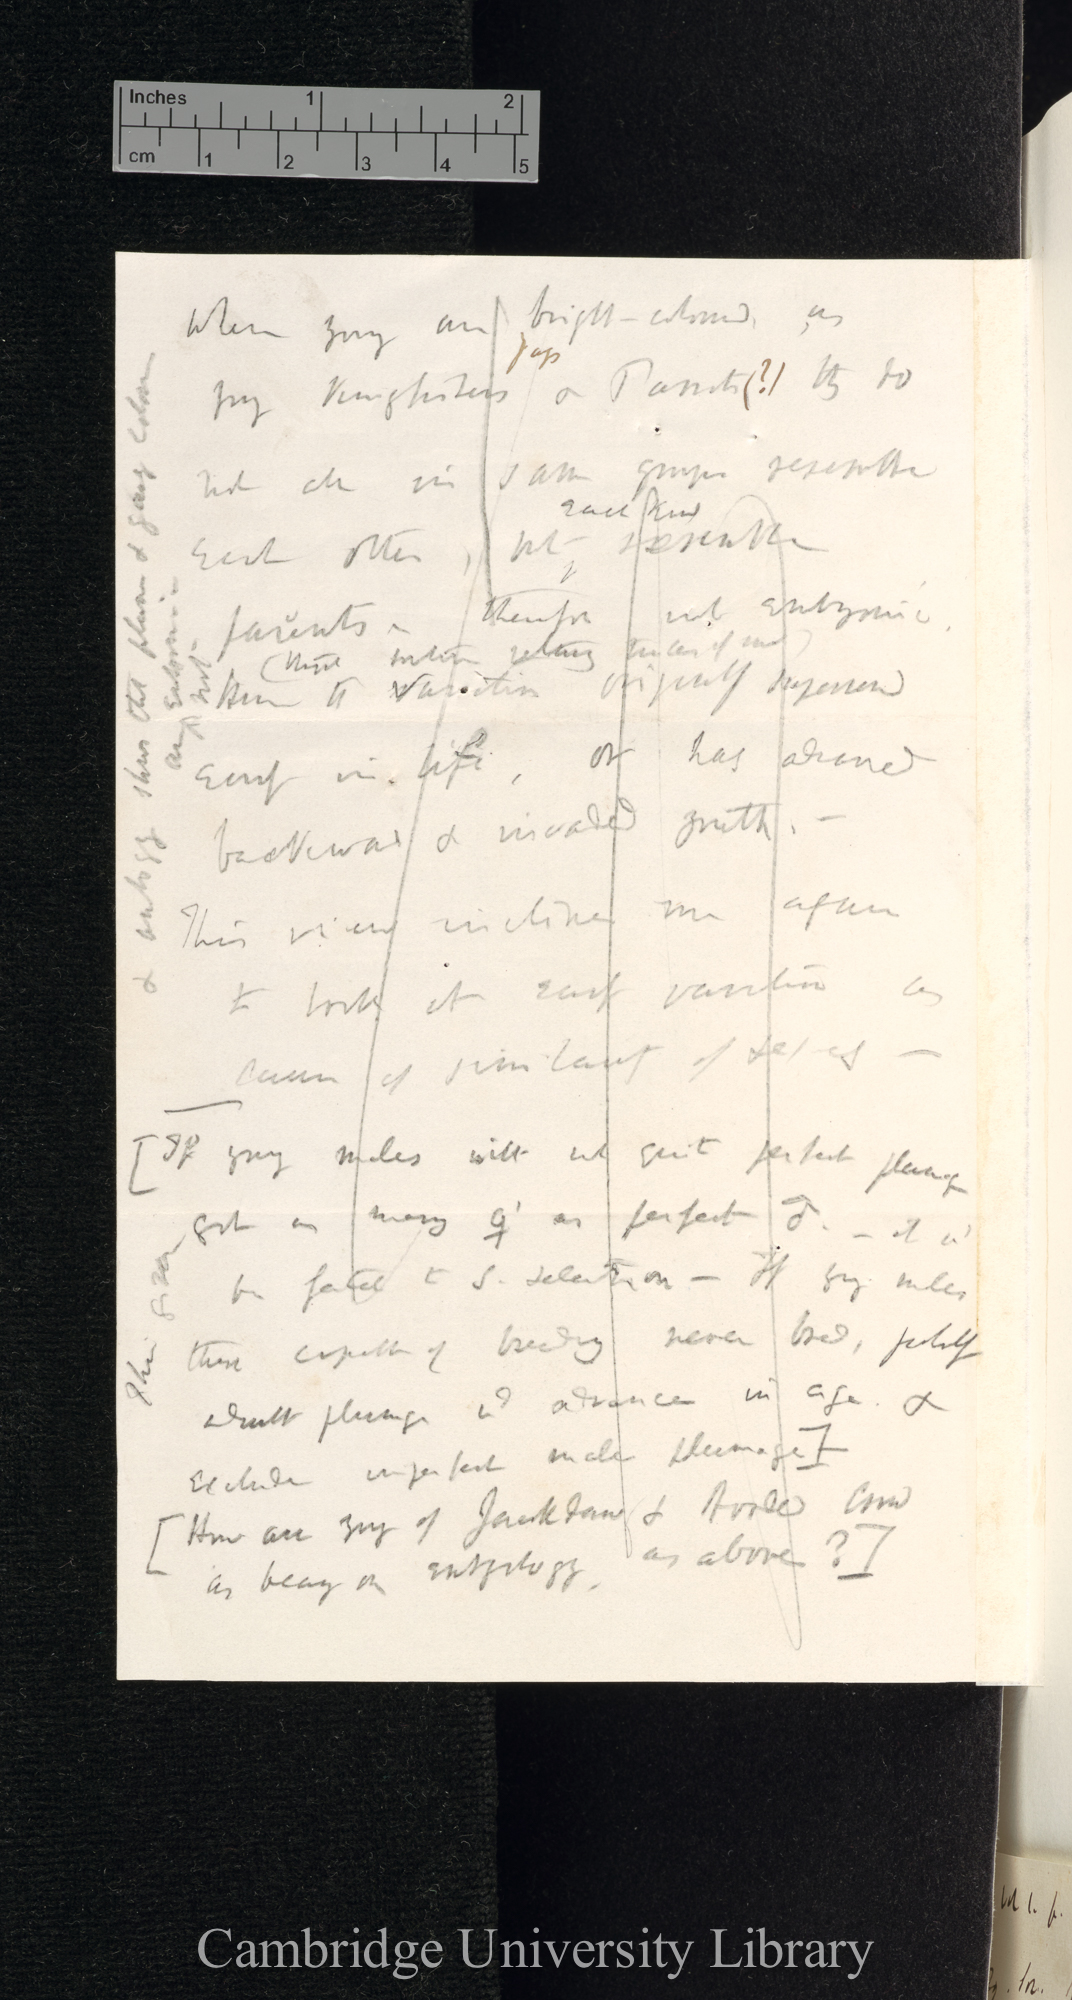 Inches 1 2
cm 1 2 3 4 5
When young are bright-coloured, as
jays
young Kingfishers & Parrots (?) they do
not all in same groups resemble
each kind
each other, but resemble
parents & therefore not embryonic.
Here the variation originally supervened
early in life, or has advanced
backward & invaded youth. —
This view inclines me again
to look at early variation as
cause of similarity of sexes —
[If young males with not quite perfect plumage
got as many ♀ as perfect ♂. — it wd
be fatal to S. selection — If young males
these capable of breeding never bred, probably
adult plumage wd advance in age. &
exclude imperfect male plumage]
[How are young of Jackdaw & Hooded Crow
as bearing on embryology, as above?]
& analogy shows that plain & gaudy colours
are embryonic
not
Cambridge University Library